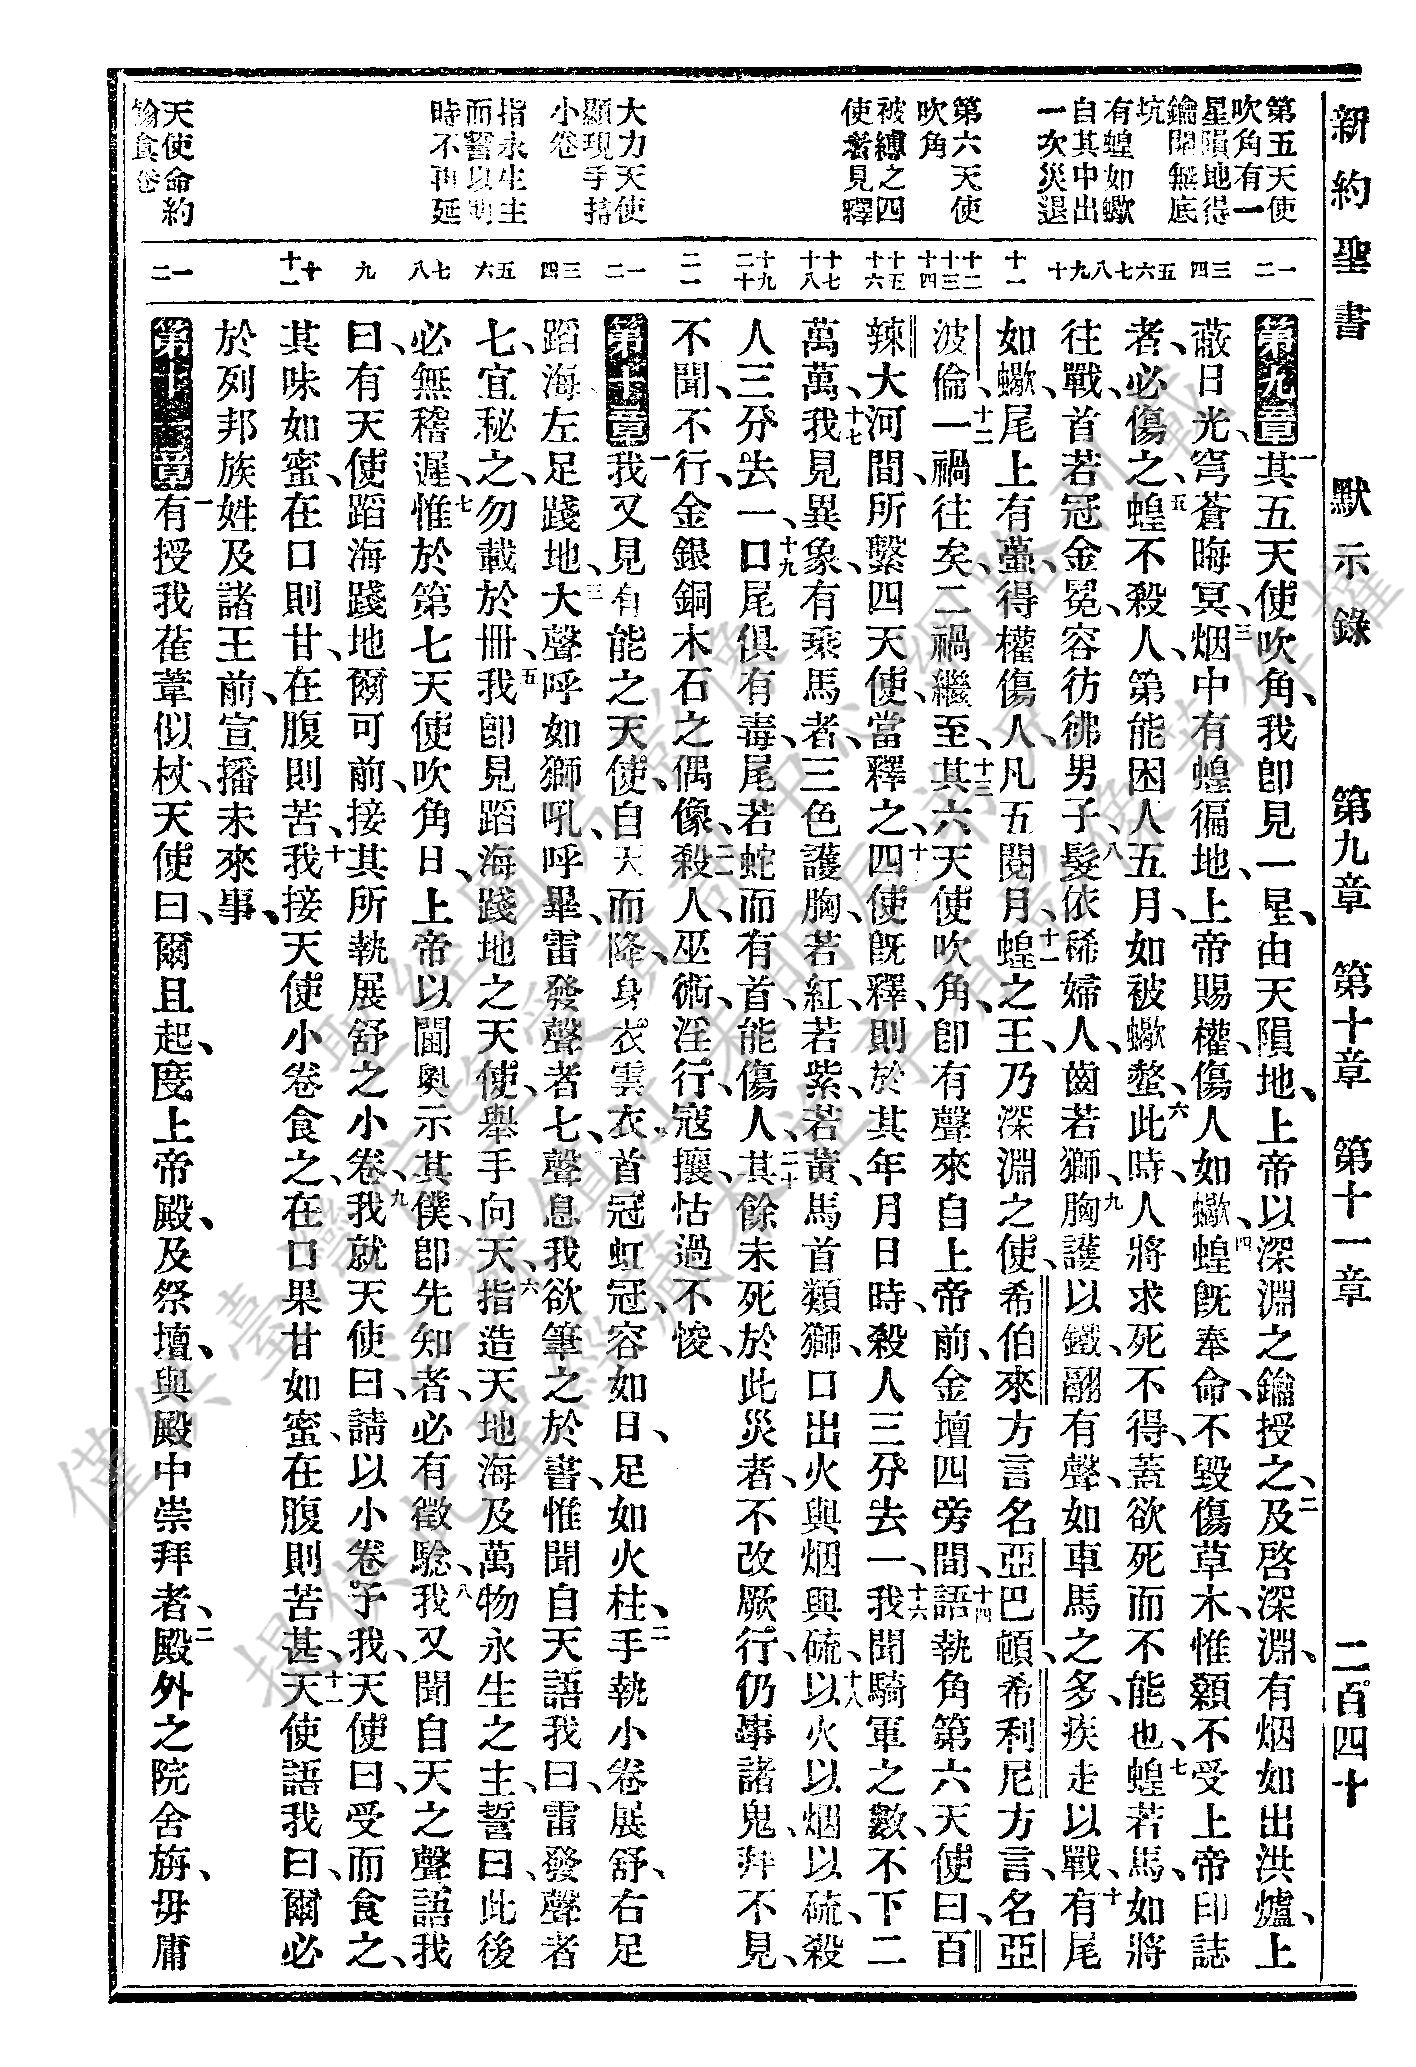 新約聖書 默示錄 第九章 第十章 第十一章 二百四十
第五天使
吹角有一
星隕地得
鑰開無底
坑
有蝗如蠍
自其中出
一次災退
第六天使
吹角
被縛之四
使者見釋
大力天使
顯現手持
小卷
指永生主
而誓以明
時不再延
天使命約
翰食卷
一二 三四 五六七八九十 十一 十二十三十四 十五十六 十七十八 十九二十 二一 一二 三四 五六 七八 九 十十一 一二
第九章一其五天使吹角、我卽見一星、由天隕地、上帝以深淵之鑰授之、二及啓深淵、有烟如出洪爐、上
蔽日光、穹蒼晦冥、三烟中有蝗徧地、上帝賜權、傷人如蠍、四蝗旣奉命、不毀傷草木、惟顙不受上帝印誌
者、必傷之、五蝗不殺人、第能困人五月、如被蠍螫、六此時、人將求死不得、蓋欲死而不能也、七蝗若馬、如將
往戰、首若冠金冕、容彷彿男子、八髮依稀婦人、齒若獅、九胸護以鐵、翮有聲、如車馬之多、疾走以戰、十有尾
如蠍、尾上有蠆、得權傷人、凡五閱月、十一蝗之王、乃深淵之使、希伯來方言名亞巴頓、希利尼方言、名亞
波倫、十二一禍往矣、二禍繼至、十三其六天使吹角、卽有聲來自上帝前、金壇四旁間、十四語執角第六天使曰、百
辣大河間、所繫四天使、當釋之、十五四使旣釋、則於其年月日時、殺人三分去一、十六我聞騎軍之數、不下二
萬萬、十七我見異象、有乘馬者、三色護胸、若紅、若紫、若黃、馬首類獅、口出火與烟與硫、十八以火以烟以硫、殺
人三分去一、十九口尾俱有毒、尾若蛇而有首、能傷人、二十其餘未死於此災者、不改厥行、仍事諸鬼、拜不見、
不聞、不行、金銀銅木石之偶像、二一殺人、巫術、淫行、寇攘、怙過不悛、
第十章一我又見有能之天使、自天而降、身衣雲衣、首冠虹冠、容如日、足如火柱、二手執小卷展舒、右足
蹈海、左足踐地、三大聲呼如獅吼、呼畢、雷發聲者七、聲息、我欲筆之於書、惟聞自天語我曰、雷發聲者
七、宜秘之、勿載於冊、五我卽見蹈海踐地之天使、舉手向天、六指造天地海及萬物永生之主、誓曰、此後
必無稽遲、七惟於第七天使吹角日、上帝以閫奧示其僕、卽先知者、必有徵驗、八我又聞自天之聲、語我
曰、有天使、蹈海踐地、爾可前、接其所執展舒之小卷、九我就天使曰、請以小卷予我、天使曰、受而食之、
其味如蜜、在口則甘、在腹則苦、十我接天使小卷食之、在口果甘如蜜、在腹則苦甚、十一天使語我曰、爾必
於列邦族姓及諸王前、宣播未來事、
第十一章一有授我萑葦似杖、天使曰、爾且起、度上帝殿、及祭壇、與殿中崇拜者、二殿外之院舍旃、毋庸